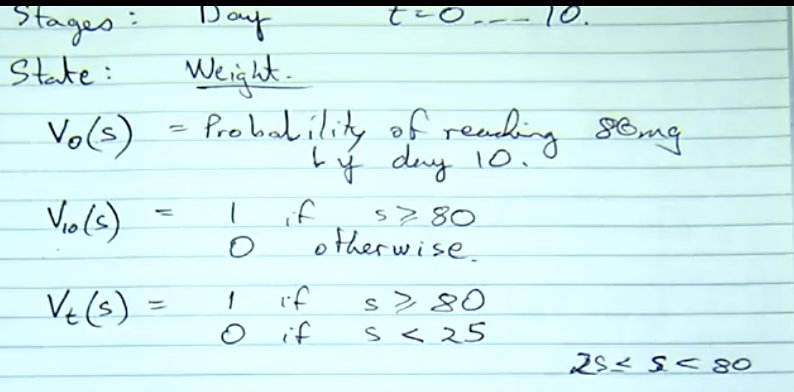 Stages: Day t=0---10.
State: Weight.
V₀(s) = Probability of reaching 80mg
by day 10.
V₁₀(s) = 1 if s ≥ 80
0 otherwise.
Vₜ(s) = 1 if s ≥ 80
0 if s < 25
25 ≤ s < 80